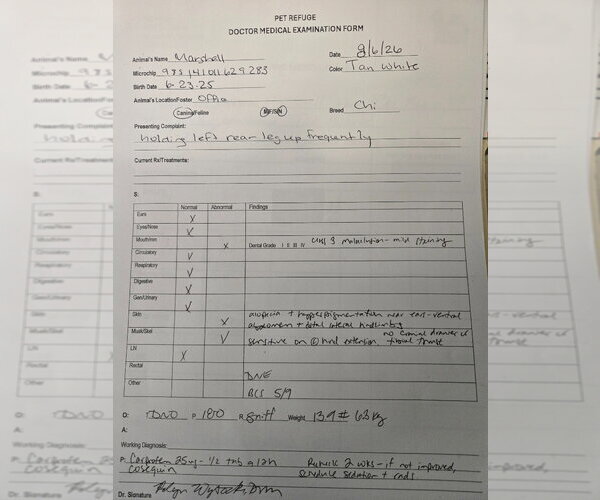 PET REFUGE
DOCTOR MEDICAL EXAMINATION FORM
Animal's Name Marshall Date 8/6/26
Microchip 985141011629283 Color Tan White
Birth Date 6-23-25
Animal's Location/Foster Office
Canine/Feline M/F/S/N Breed Chi
Presenting Complaint:
holding left rear leg up frequently
Current Rx/Treatments:
S:
Normal Abnormal Findings
Ears X
Eyes/Nose X
Mouth/mm X Dental Grade I II III IV class 3 malocclusion - mild staining
Circulatory X
Respiratory X
Digestive X
Gen/Urinary X
Skin X alopecia + hyperpigmentation near ears - ventral
abdomen + lateral hindlimbs
Musk/Skel X no cranial drawer or
sensitive on hind extension, tibial thrust
LN X
Rectal DNE
Other BCS 5/9
O: T DNO P 180 R sniff Weight 13.9# 6.3 kg
A:
Working Diagnosis:
P: Carprofen 25mg - 1/2 tab q 12h Recheck 2 wks - if not improved,
cosequin schedule sedation + rads
Dr. Signature